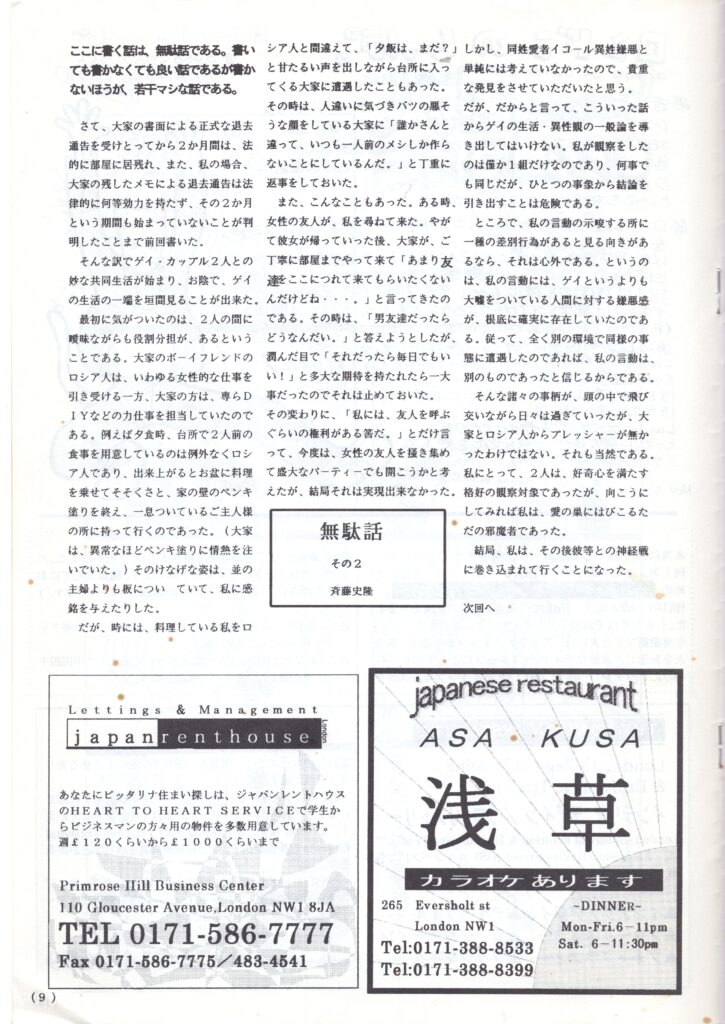 ここに書く話は、無駄話である。書い
ても書かなくても良い話であるが書か
ないほうが、若干マシな話である。
さて、大家の書面による正式な退去
通告を受けとってから2か月間は、法
的に部屋に居残れ、また、私の場合、
大家の残したメモによる退去通告は法
律的に何等効力を持たず、その2か月
という期間も始まっていないことが判
明したことまで前回書いた。
そんな訳でゲイ・カップル2人との
妙な共同生活が始まり、お陰で、ゲイ
の生活の一端を垣間見ることが出来た。
最初に気がついたのは、2人の間に
曖昧ながらも役割分担が、あるという
ことである。大家のボーイフレンドの
ロシア人は、いわゆる女性的な仕事を
引き受ける一方、大家の方は、専らD
IYなどの力仕事を担当していたので
ある。例えば夕食時、台所で2人前の
食事を用意しているのは例外なくロシ
ア人であり、出来上がるとお盆に料理
を乗せてそそくさと、家の壁のペンキ
塗りを終え、一息ついているご主人様
の所に持って行くのであった。(大家
は、異常なほどペンキ塗りに情熱を注
いでいた。)そのけなげな姿は、並の
主婦よりも板につい ていて、私に感
銘を与えたりした。
だが、時には、料理している私をロ
シア人と間違えて、「夕飯は、まだ?」
と甘たるい声を出しながら台所に入っ
てくる大家に遭遇したこともあった。
その時は、人違いに気づきバツの悪そ
うな顔をしている大家に「誰かさんと
違って、いつも一人前のメシしか作ら
ないことにしているんだ。」と丁重に
返事をしておいた。
また、こんなこともあった。ある時、
女性の友人が、私を尋ねて来た。やが
て彼女が帰っていった後、大家が、ご
丁寧に部屋までやって来て「あまり友
達をここにつれて来てもらいたくない
んだけどね・・・。」と言ってきたの
である。その時は、「男友達だったら
どうなんだい。」と答えようとしたが、
潤んだ目で「それだったら毎日でもい
い!」と多大な期待を持たれたら一大
事だったのでそれは止めておいた。
その変わりに、「私には、友人を呼ぶ
ぐらいの権利がある筈だ。」とだけ言
って、今度は、女性の友人を掻き集め
て盛大なパーティーでも開こうかと考
えたが、結局それは実現出来なかった。
無駄話
その2
斉藤史隆
しかし、同姓愛者イコール異姓嫌悪と
単純には考えていなかったので、貴重
な発見をさせていただいたと思う。
だが、だからと言って、こういった話
からゲイの生活・異性観の一般論を導
き出してはいけない。私が観察をした
のは僅か1組だけなのであり、何事で
も同じだが、ひとつの事象から結論を
引き出すことは危険である。
ところで、私の言動の示唆する所に
一種の差別行為があると見る向きがあ
るなら、それは心外である。というの
は、私の言動には、ゲイというよりも
大嘘をついている人間に対する嫌悪感
が、根底に確実に存在していたのであ
る。従って、全く別の環境で同様の事
態に遭遇したのであれば、私の言動は、
別のものであったと信じるからである。
そんな諸々の事柄が、頭の中で飛び
交いながら日々は過ぎていったが、大
家とロシア人からプレッシャーが無か
ったわけではない。それも当然である。
私にとって、2人は、好奇心を満たす
格好の観察対象であったが、向こうに
してみれば私は、愛の巣にはびこるた
だの邪魔者であった。
結局、私は、その後彼等との神経戦
に巻き込まれて行くことになった。
次回へ
Lettings & Management
japanrenthouse London
あなたにピッタリナ住まい探しは、ジャパンレントハウス
のHEART TO HEART SERVICEで学生か
らビジネスマンの方々用の物件を多数用意しています。
週£120くらいから£1000くらいまで
Primrose Hill Business Center
110 Gloucester Avenue,London NW1 8JA
TEL 0171-586-7777
Fax 0171-586-7775/483-4541
japanese restaurant
ASA KUSA
浅草
カラオケあります
265 Eversholt st
London NW1
Tel:0171-388-8533
Tel:0171-388-8399
~DINNER~
Mon-Fri.6-11pm
Sat. 6-11:30pm
(9)